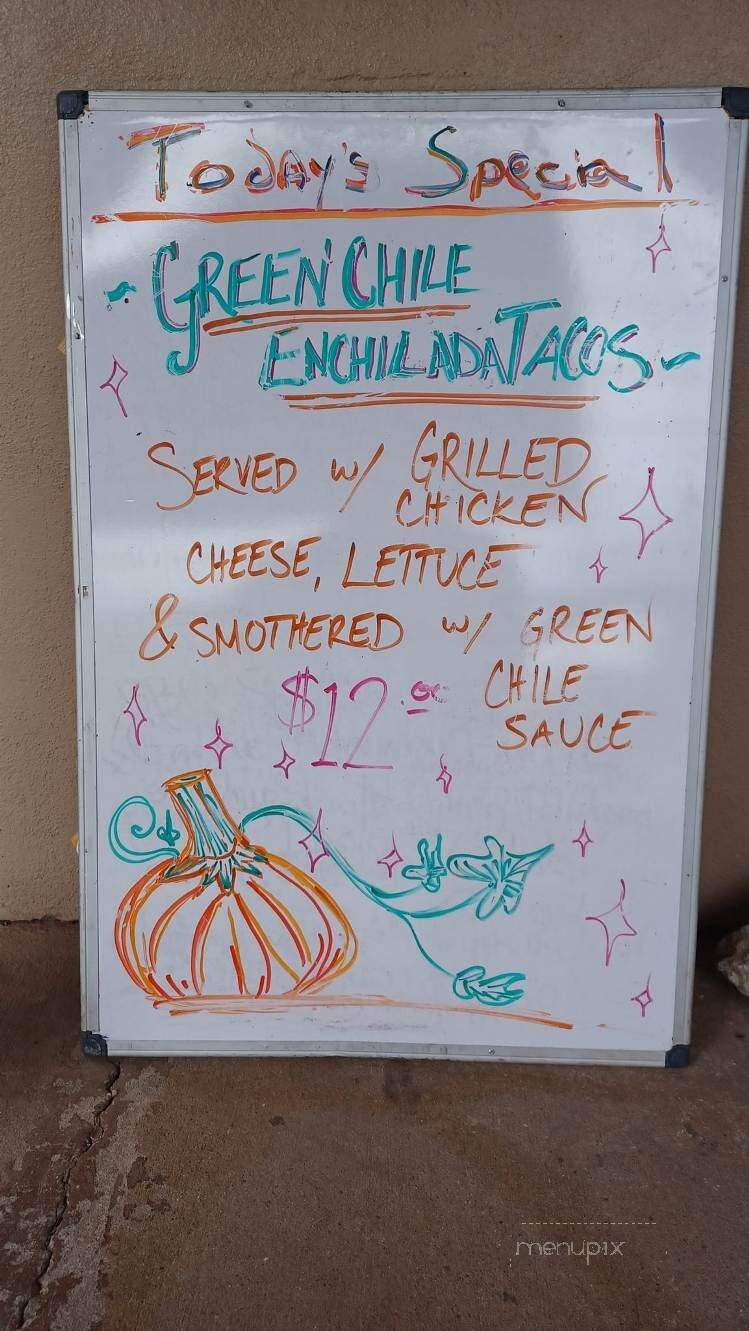 Today's Special
~ GREEN CHILE
ENCHILADA TACOS ~
SERVED w/ GRILLED
CHICKEN
CHEESE, LETTUCE
& SMOTHERED w/ GREEN
CHILE
SAUCE
$12.00
menupix